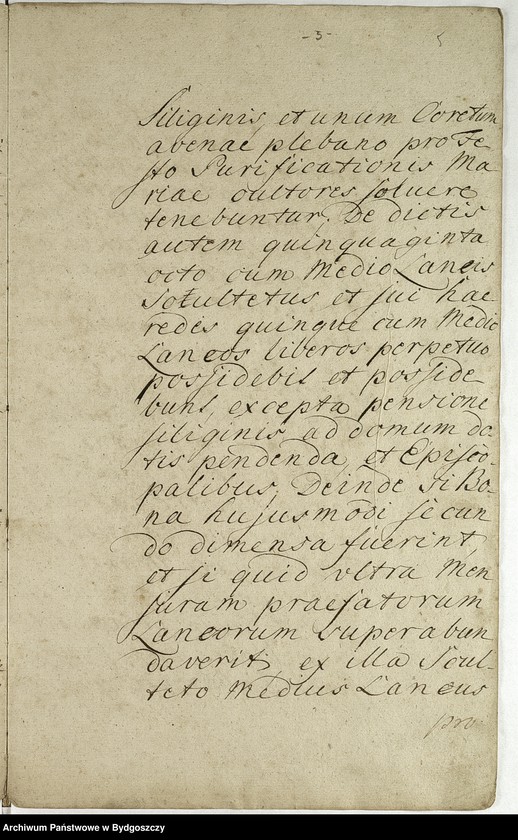 -3-
5
Siliginis, et unum Coretum
avenae plebano pro Fe-
sto Purificationis Ma-
riae cultores soluere
tenebuntur. De dictis
autem quinquaginta
octo cum Medio Laneis
Sołtultetus et sui hae
redes quinque cum Medio
Laneos liberos perpetuo
possidebit et posside
bunt, excepta pensione
siliginis ad domum da-
tis pendenda, et Episco-
palibus, Deinde si Bo-
na hujusmodi secun
do dimensa fuerint,
et si quid ultra Men
suram praefatorum
Laneorum superabun
daverit, ex illa Scul-
teto Medius Laneus
pro
Archiwum Państwowe w Bydgoszczy